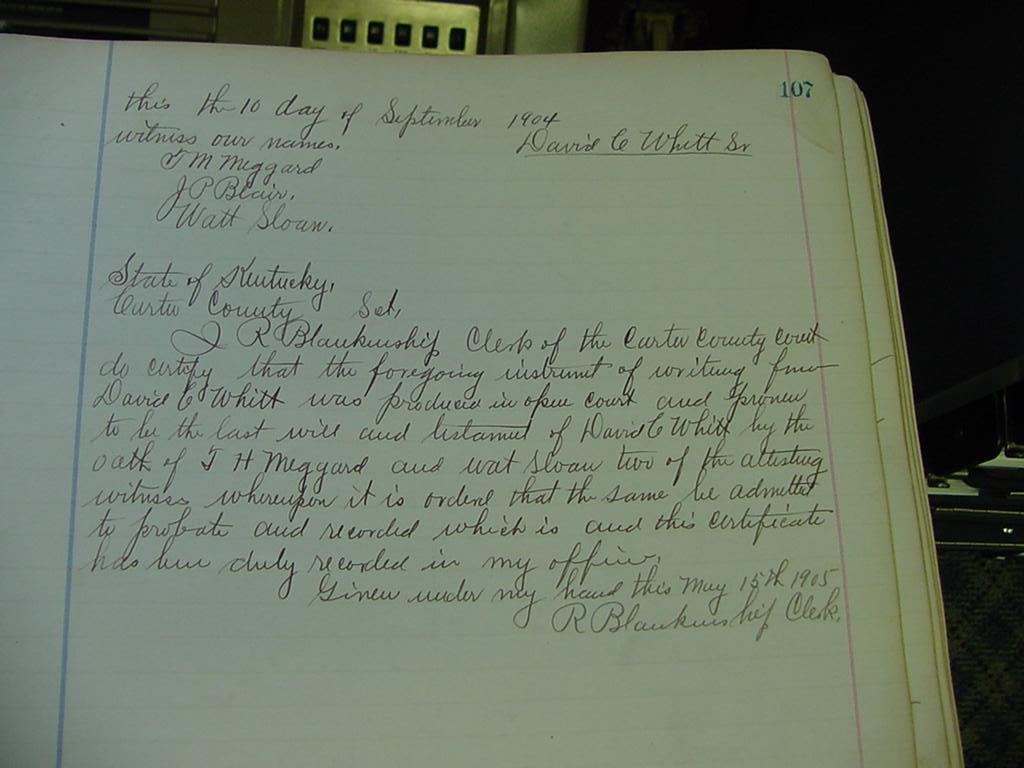 107
this the 10 day of September 1904
witness our names. David C Whitt Sr
T M Meggard
J P Blair.
Watt Sloan.
State of Kentucky,
Carter County Sct,
I R Blankenship Clerk of the Carter County Court
do certify that the foregoing instrumt of writing from
David C Whitt was produced in open court and proven
to be the last will and testament of David C Whitt by the
oath of T H Meggard and Wat Sloan two of the attesting
witness whereupon it is orderd that the same be admitted
to probate and recorded which is and this certificate
has been duly recorded in my office.
Given under my hand this May 15th 1905
R Blankenship Clerk.